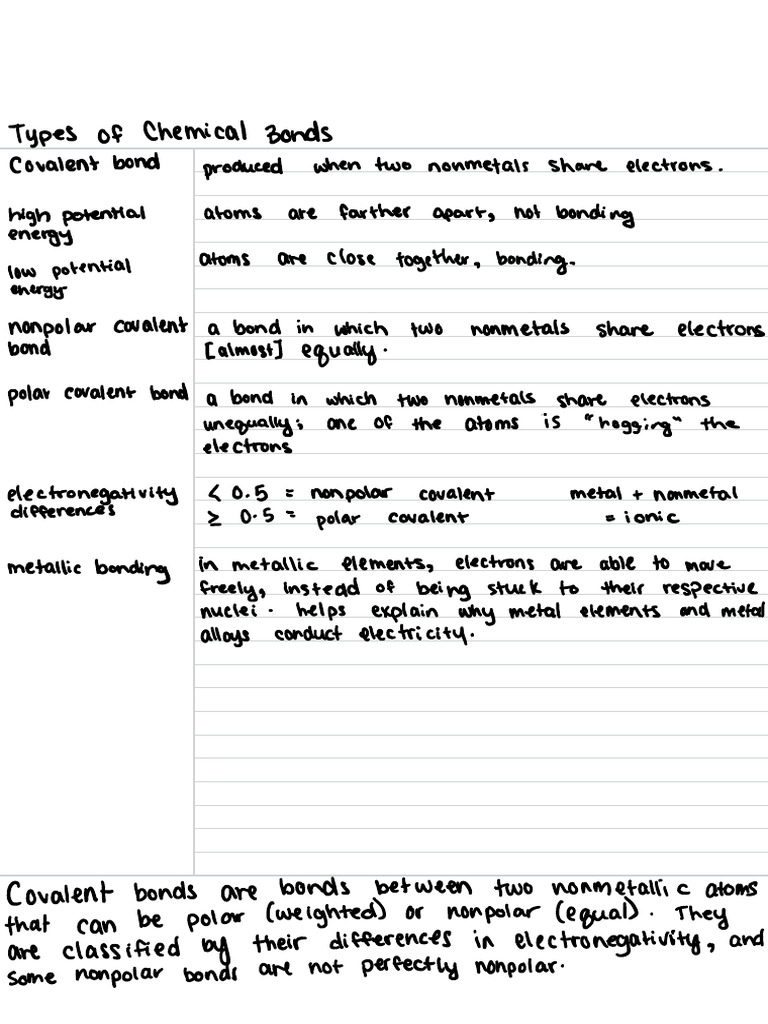 Types of Chemical Bonds
Covalent bond
produced when two nonmetals share electrons.
high potential
energy
atoms are farther apart, not bonding
low potential
energy
atoms are close together, bonding.
nonpolar covalent
bond
a bond in which two nonmetals share electrons
[almost] equally.
polar covalent bond
a bond in which two nonmetals share electrons
unequally; one of the atoms is "hogging" the
electrons
electronegativity
differences
< 0.5 = nonpolar covalent metal + nonmetal
≥ 0.5 = polar covalent = ionic
metallic bonding
in metallic elements, electrons are able to move
freely, instead of being stuck to their respective
nuclei. helps explain why metal elements and metal
alloys conduct electricity.
Covalent bonds are bonds between two nonmetallic atoms
that can be polar (weighted) or nonpolar (equal). They
are classified by their differences in electronegativity, and
some nonpolar bonds are not perfectly nonpolar.